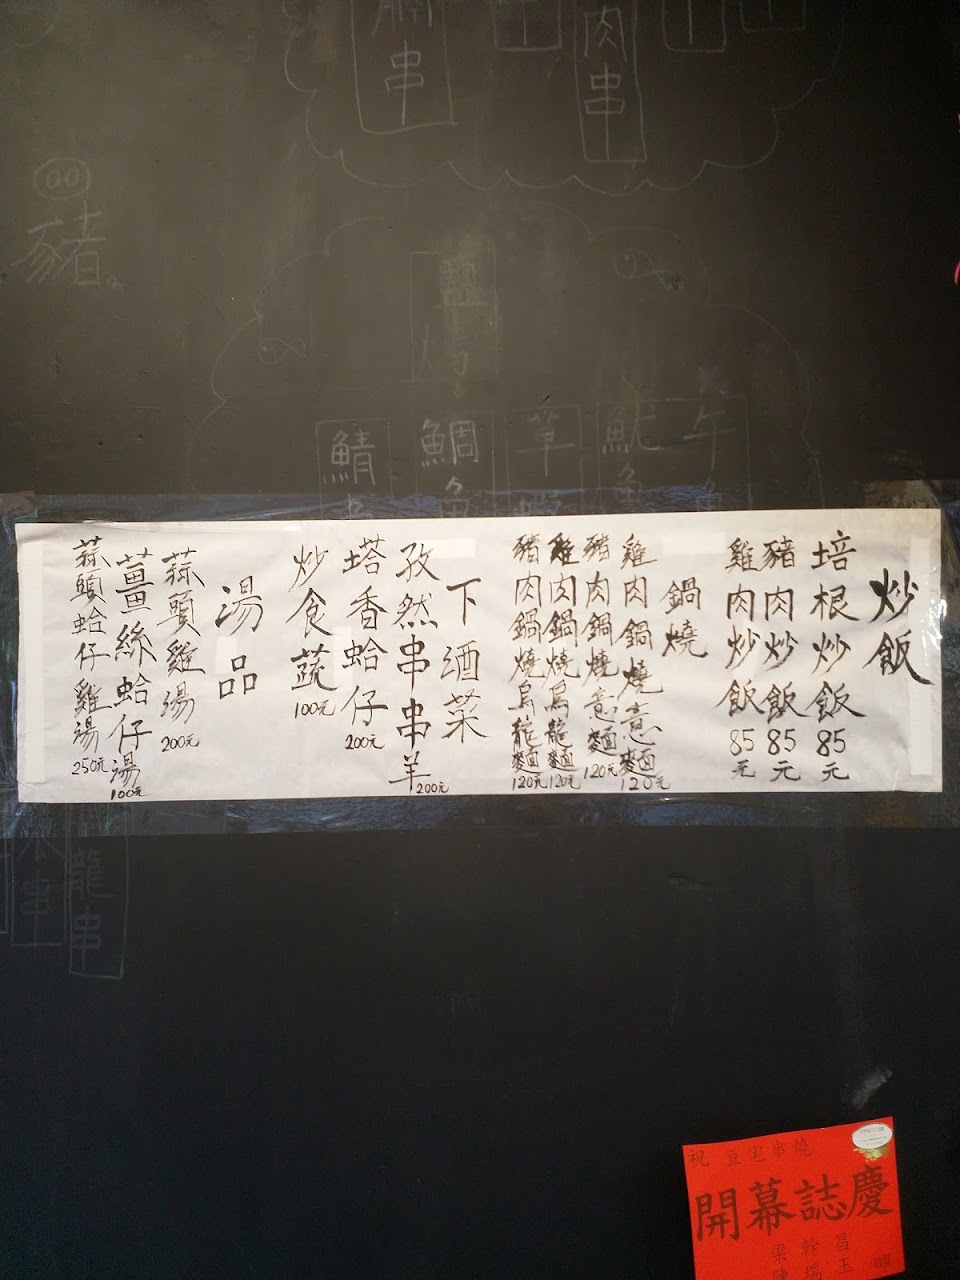 串
肉串
豬
鯖
鯛魚
草蝦
魷魚
炒飯
培根炒飯85元
豬肉炒飯85元
雞肉炒飯85元
鍋燒
雞肉鍋燒意麵120元
豬肉鍋燒意麵120元
雞肉鍋燒烏龍麵120元
豬肉鍋燒烏龍麵120元
下酒菜
孜然串串羊200元
塔香蛤仔200元
炒食蔬100元
湯品
蒜頭雞湯200元
薑絲蛤仔湯100元
蒜頭蛤仔雞湯250元
串
龍串
祝 豆宅串燒
開幕誌慶
梁幹昌
瑞玉